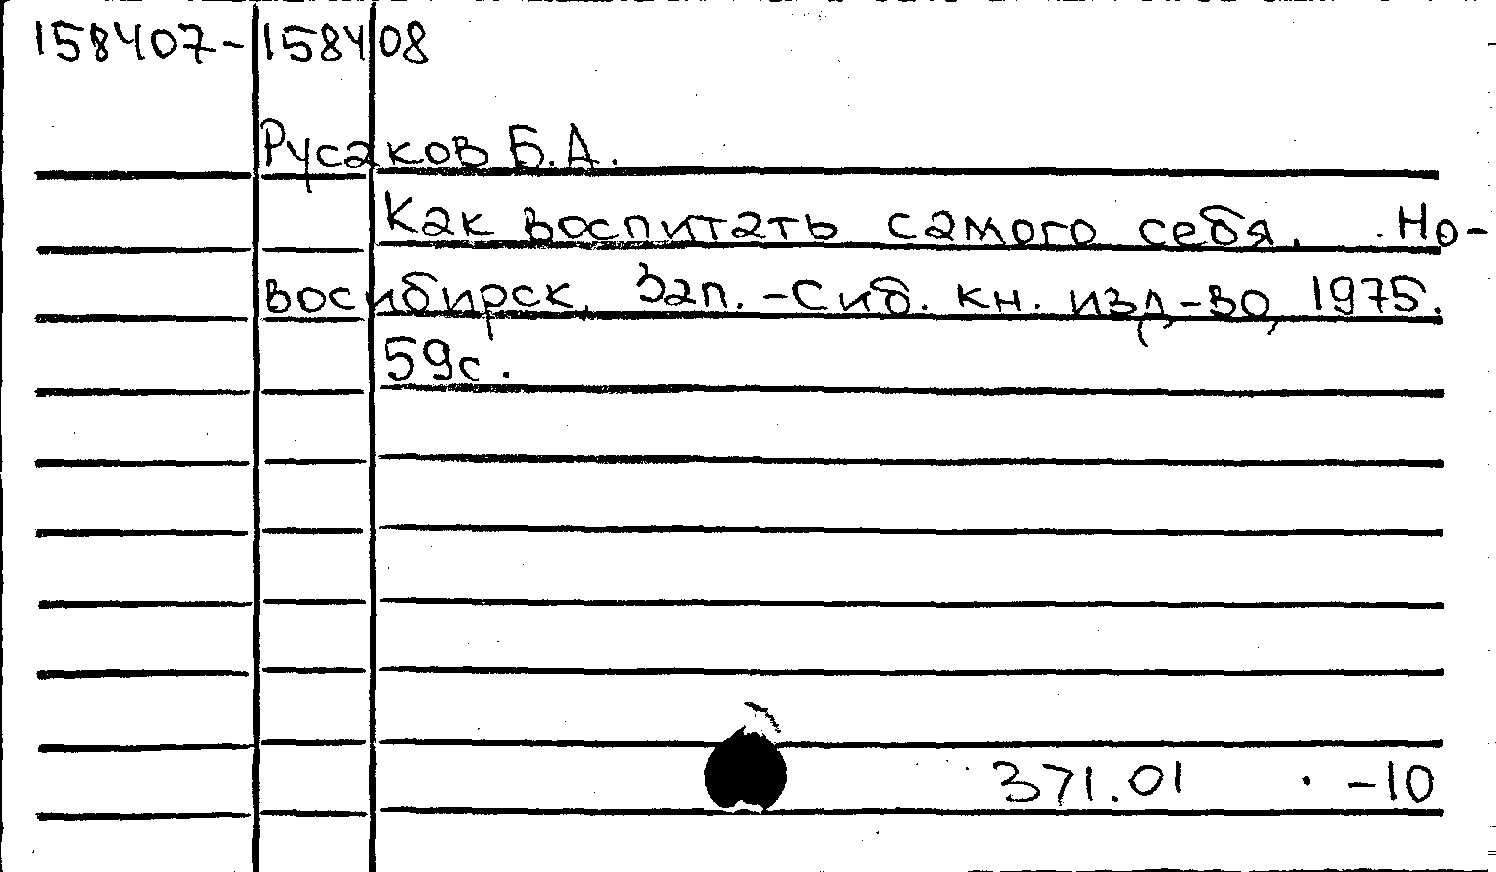 158407-158408
Русаков Б.А.
Как воспитать самого себя. Но-
восибирск, Зап.-Сиб. кн. изд-во, 1975.
59с.
371.01 -10